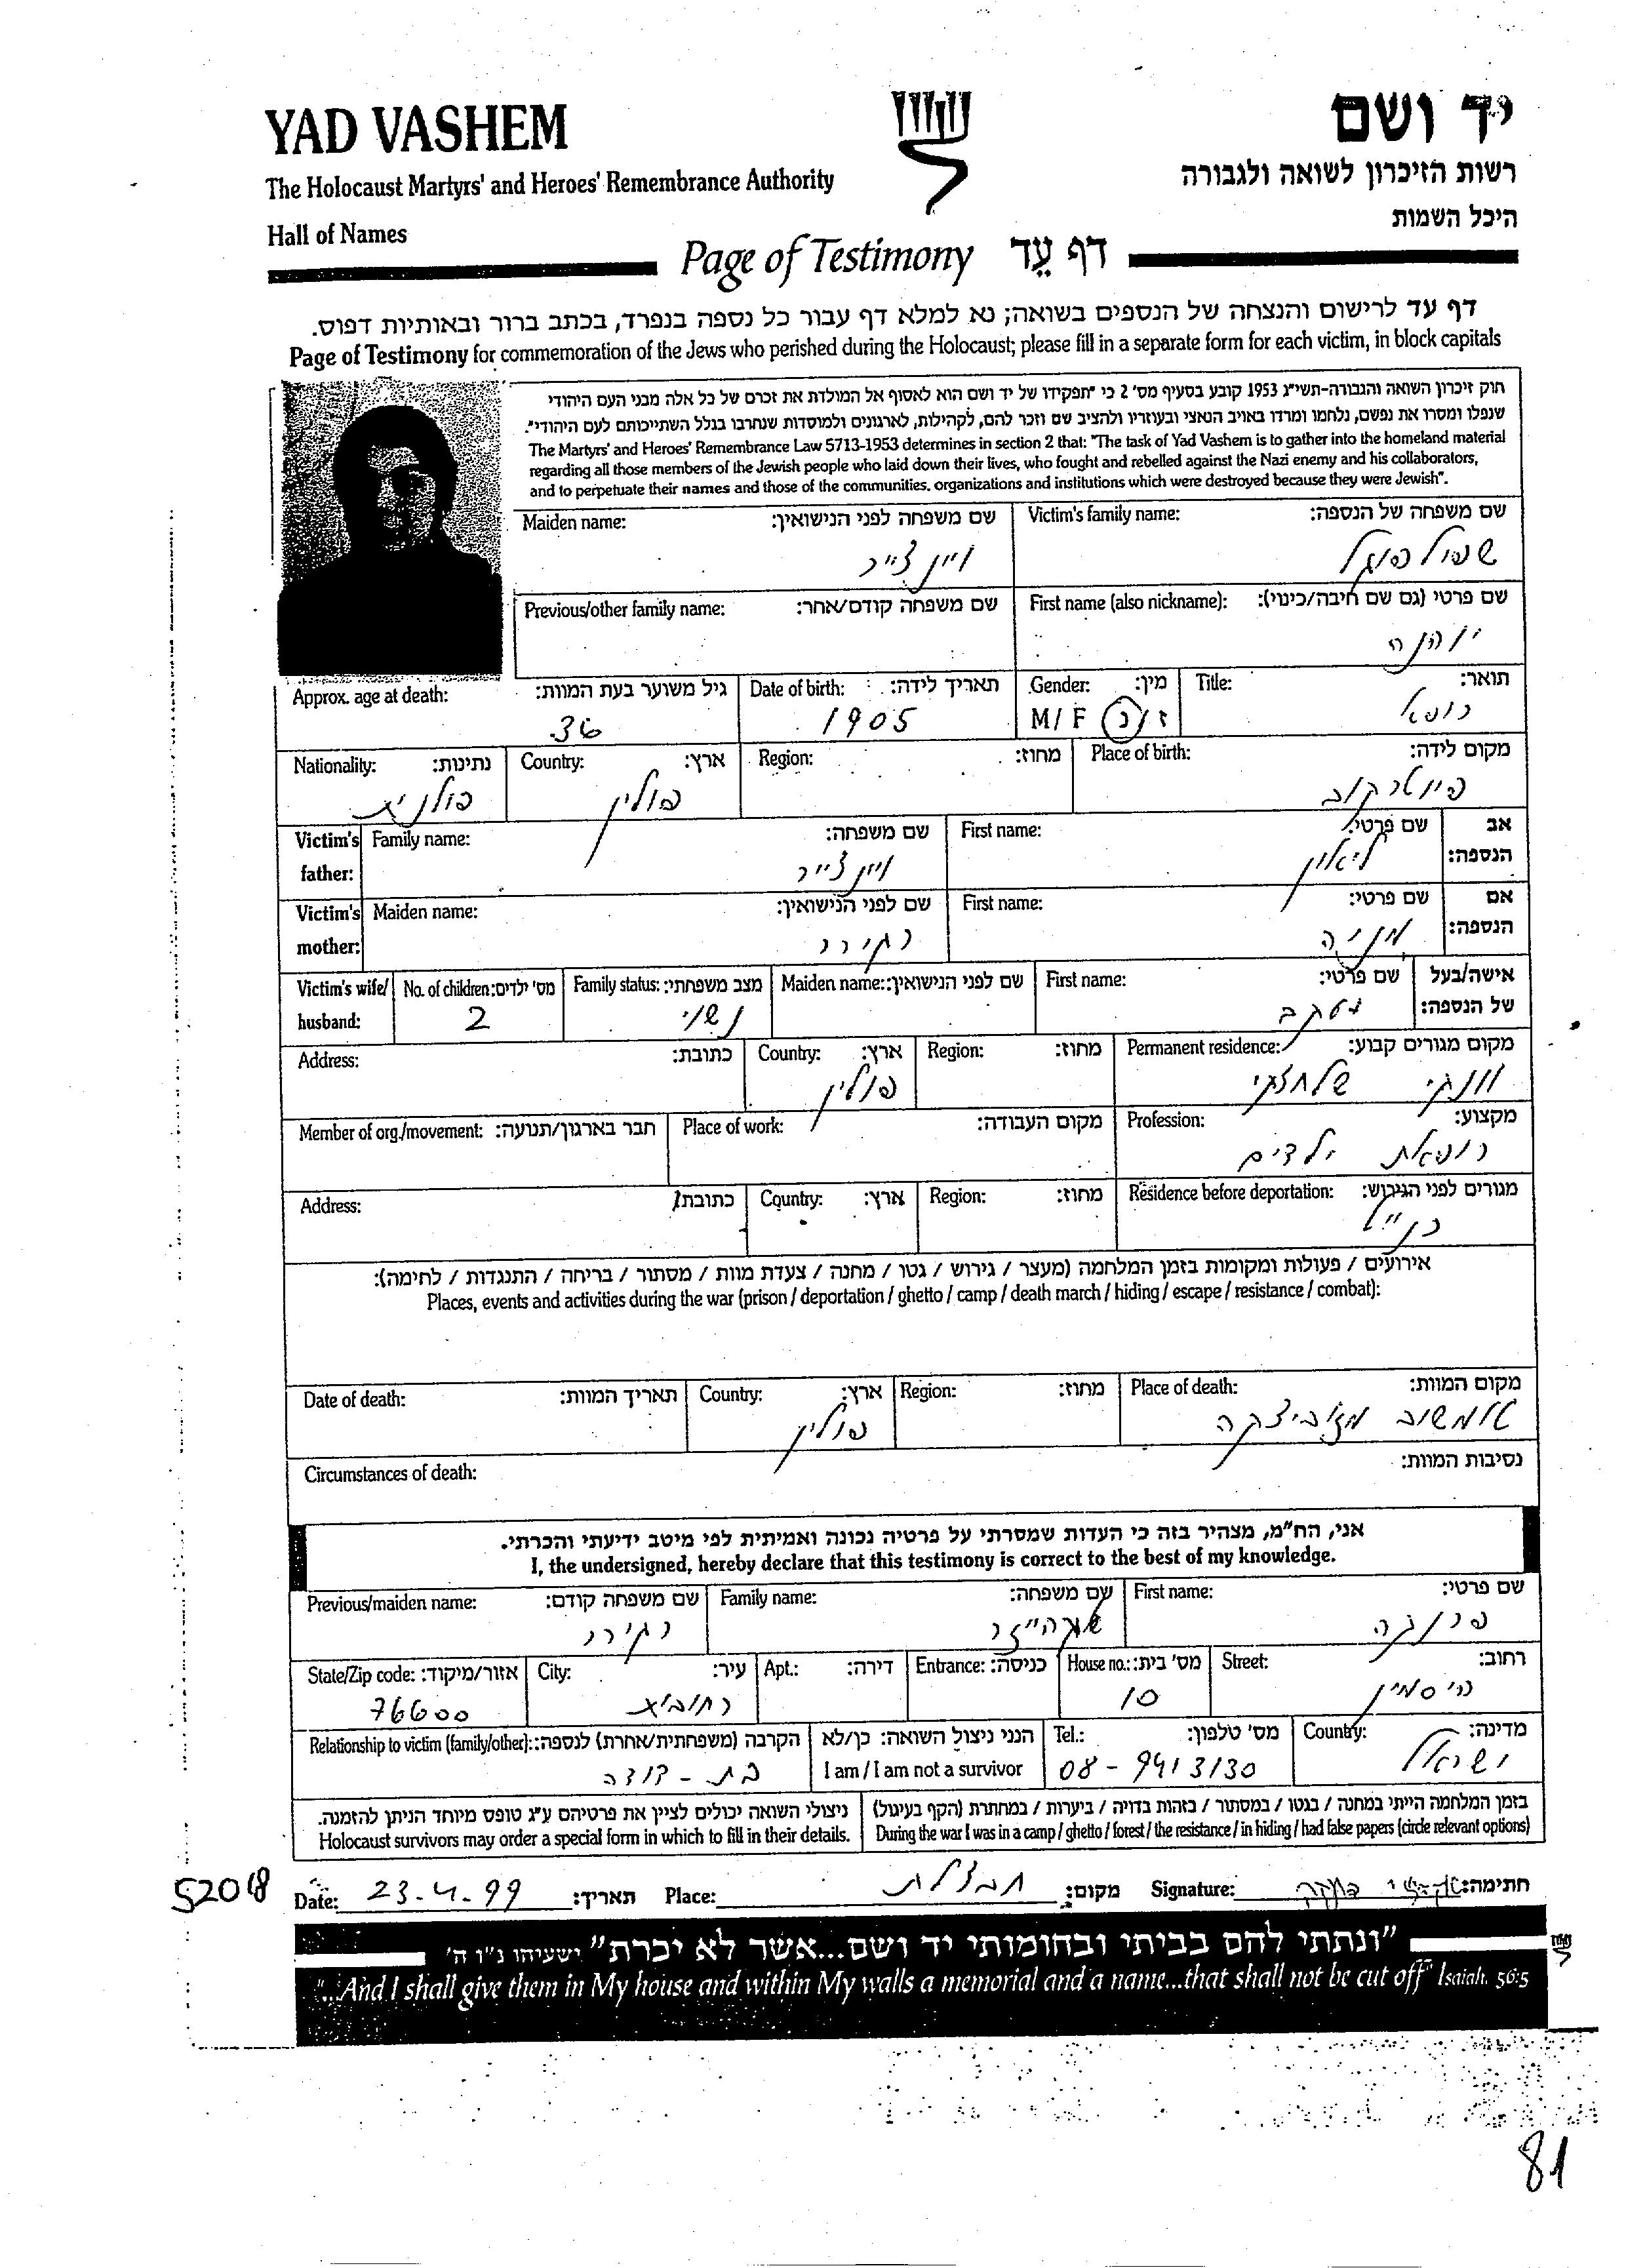 YAD VASHEM
יד ושם
The Holocaust Martyrs' and Heroes' Remembrance Authority
רשות הזיכרון לשואה ולגבורה
Hall of Names
היכל השמות
Page of Testimony דף עֵד
דף עד לרישום והנצחה של הנספים בשואה; נא למלא דף עבור כל נספה בנפרד, בכתב ברור ובאותיות דפוס.
Page of Testimony for commemoration of the Jews who perished during the Holocaust; please fill in a separate form for each victim, in block capitals
חוק זיכרון השואה והגבורה-תשי"ג 1953 קובע בסעיף מס' 2 כי "תפקידו של יד ושם הוא לאסוף אל המולדת את זכרם של כל אלה מבני העם היהודי
שנפלו ומסרו את נפשם, נלחמו ומרדו באויב הנאצי ובעוזריו ולהציב שם וזכר להם, לקהילות, לארגונים ולמוסדות שנחרבו בגלל השתייכותם לעם היהודי".
The Martyrs' and Heroes' Remembrance Law 5713-1953 determines in section 2 that: "The task of Yad Vashem is to gather into the homeland material
regarding all those members of the Jewish people who laid down their lives, who fought and rebelled against the Nazi enemy and his collaborators,
and to perpetuate their names and those of the communities, organizations and institutions which were destroyed because they were Jewish".
Maiden name: שם משפחה לפני הנישואין: Victim's family name: שם משפחה של הנספה:
ויינצייר
Previous/other family name: שם משפחה קודם/אחר: First name (also nickname): שם פרטי (גם שם חיבה/כינוי):
יוהנה
Approx. age at death: גיל משוער בעת המוות: Date of birth: תאריך לידה: Gender: מין: Title: תואר:
36 1905 M/F ז/נ רופא
Nationality: נתינות: Country: ארץ: Region: מחוז: Place of birth: מקום לידה:
פולנית פולין פיוטרקוב
Victim's father: Family name: שם משפחה: First name: שם פרטי: אב הנספה:
ויינצייר ליאון
Victim's mother: Maiden name: שם לפני הנישואין: First name: שם פרטי: אם הנספה:
מניה
Victim's wife/husband: No. of children: מס' ילדים: Family status: מצב משפחתי: Maiden name: שם לפני הנישואין: First name: שם פרטי: אישה/בעל של הנספה:
2 נשוי יעקב
Address: כתובת: Country: ארץ: Region: מחוז: Permanent residence: מקום מגורים קבוע:
פולין
Member of org./movement: חבר בארגון/תנועה: Place of work: מקום העבודה: Profession: מקצוע:
רופאת ילדים
Address: כתובת: Country: ארץ: Region: מחוז: Residence before deportation: מגורים לפני הגירוש:
כנ"ל
אירועים / פעולות ומקומות בזמן המלחמה (מעצר / גירוש / גטו / מחנה / צעדת מוות / מסתור / בריחה / התנגדות / לחימה):
Places, events and activities during the war (prison / deportation / ghetto / camp / death march / hiding / escape / resistance / combat):
Date of death: תאריך המוות: Country: ארץ: Region: מחוז: Place of death: מקום המוות:
פולין טומשוב מזוביצקה
Circumstances of death: נסיבות המוות:
אני, הח"מ, מצהיר בזה כי העדות שמסרתי על פרטיה נכונה ואמיתית לפי מיטב ידיעתי והכרתי.
I, the undersigned, hereby declare that this testimony is correct to the best of my knowledge.
Previous/maiden name: שם משפחה קודם: Family name: שם משפחה: First name: שם פרטי:
State/Zip code: אזור/מיקוד: City: עיר: Apt.: דירה: Entrance: כניסה: House no.: מס' בית: Street: רחוב:
76600 רחובות 10 היסמין
Relationship to victim (family/other): הקרבה (משפחתית/אחרת) לנספה: הנני ניצול השואה: כן/לא Tel.: מס' טלפון: Country: מדינה:
בת-דודה I am / I am not a survivor 08-9413130 ישראל
ניצולי השואה יכולים לציין את פרטיהם ע"ג טופס מיוחד הניתן להזמנה.
Holocaust survivors may order a special form in which to fill in their details.
בזמן המלחמה הייתי במחנה / בגטו / במסתור / בזהות בדויה / ביערות / במחתרת (הקף בעיגול)
During the war I was in a camp / ghetto / forest / the resistance / in hiding / had false papers (circle relevant options)
52018
Date: 23.4.99 תאריך: Place: חבצלת מקום: Signature: חתימה:
"ונתתי להם בביתי ובחומותי יד ושם...אשר לא יכרת" ישעיהו נ"ו ה'
"...And I shall give them in My house and within My walls a memorial and a name...that shall not be cut off" Isaiah. 56:5
81